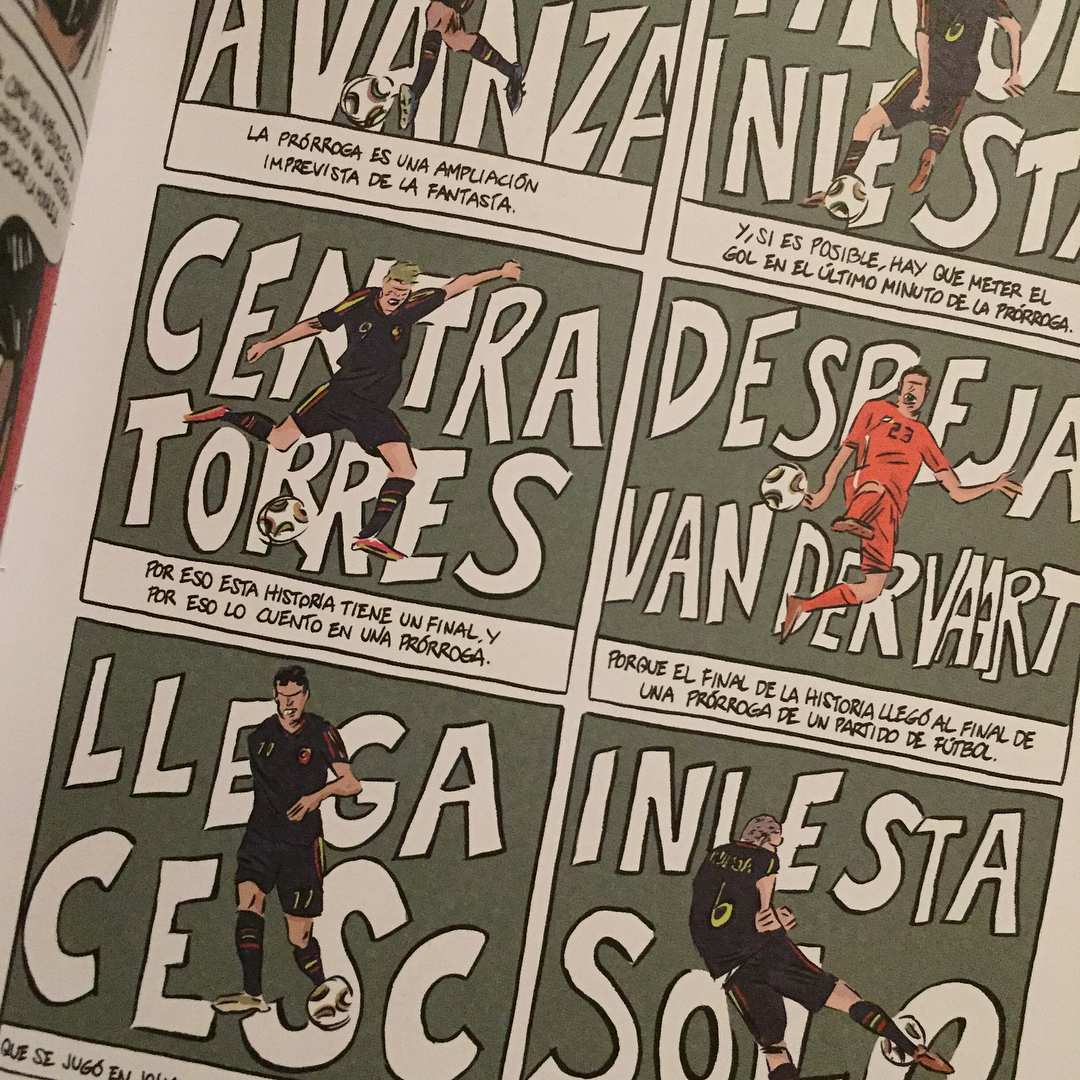 AVANZA
LA PRÓRROGA ES UNA AMPLIACIÓN
IMPREVISTA DE LA FANTASÍA.
INIESTA
Y, SI ES POSIBLE, HAY QUE METER EL
GOL EN EL ÚLTIMO MINUTO DE LA PRÓRROGA.
CENTRA
TORRES
9
POR ESO ESTA HISTORIA TIENE UN FINAL, Y
POR ESO LO CUENTO EN UNA PRÓRROGA.
DESPEJA
VAN DER VAART
23
PORQUE EL FINAL DE LA HISTORIA LLEGÓ AL FINAL DE
UNA PRÓRROGA DE UN PARTIDO DE FÚTBOL.
LLEGA
CESC
10
11
QUE SE JUGÓ EN
INIESTA
SOLO
6